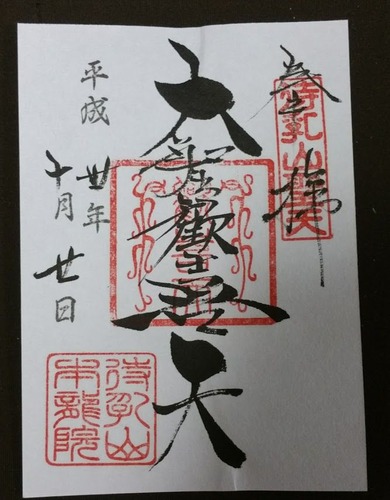 奉拝
待乳山聖天
大聖歓喜天
平成廿年
十月廿日
待乳山
本龍院